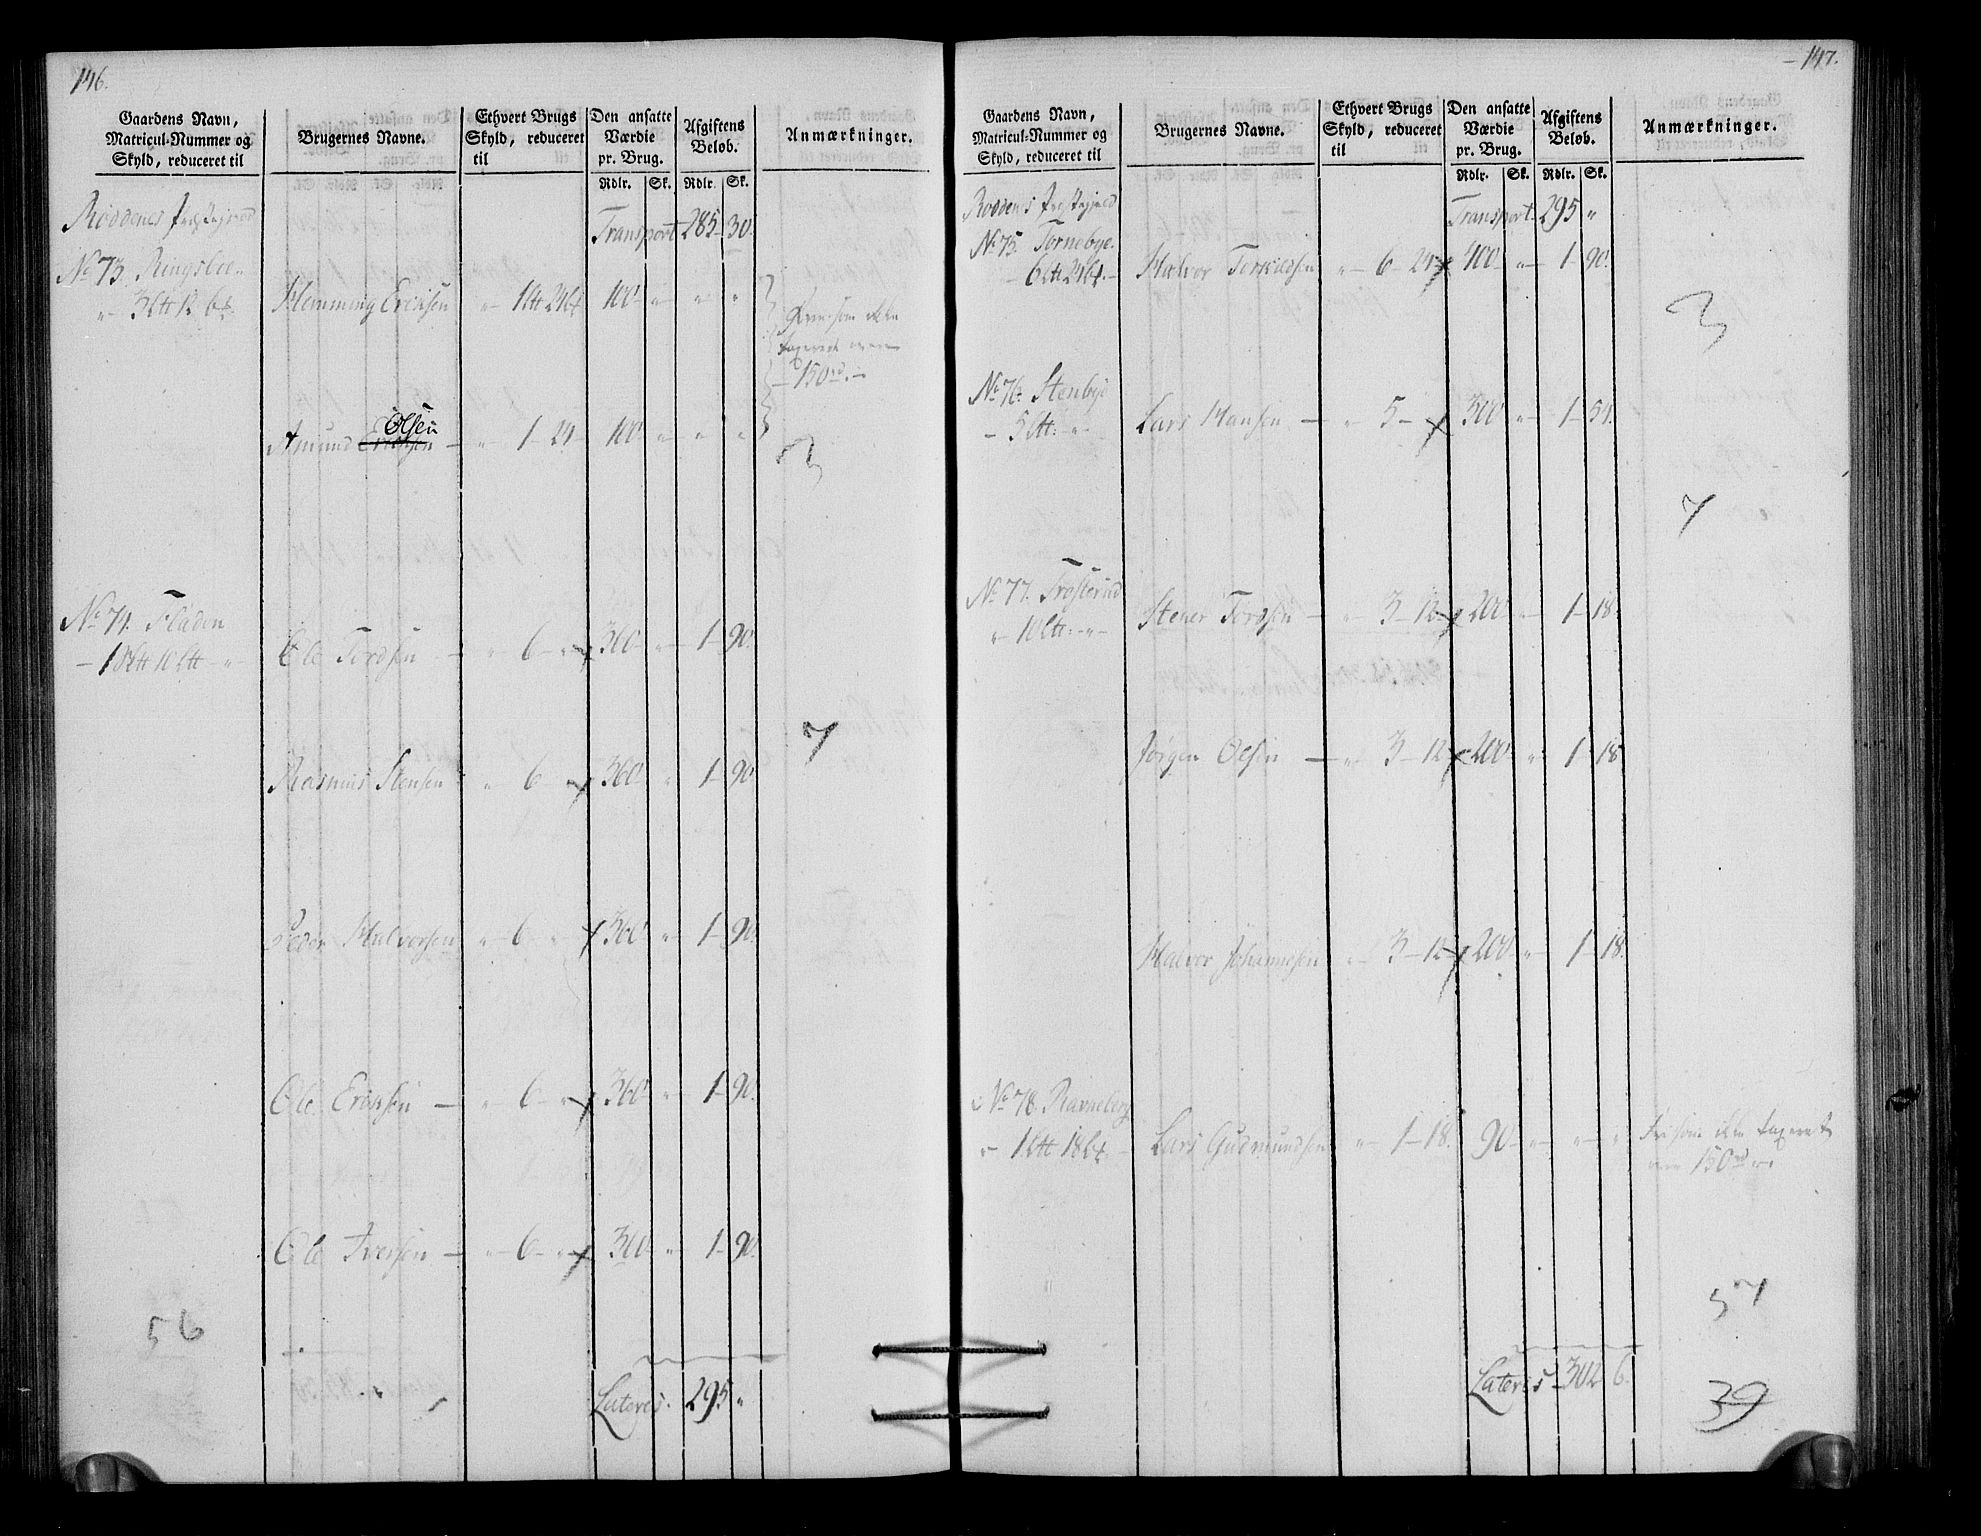 146.
Gaardens Navn, Matricul-Nummer og Skyld, reduceret til
Brugernes Navne.
Ethvert Brugs Skyld, reduceret til
Den ansatte Værdie pr. Brug.
Afgiftens Beløb.
Anmærkninger.
Rdlr. Sk. Rdlr. Sk.
Røddenes Præstegield Transport 285 30
No 73. Ringsboe
" 3 12 Flemming Eriksen " 1 24 100 " " "
Frie som ikke
taxerede over
150 rd.
Olsen
Amund Eriksen " 1 24 100 " " "
3
No 74. Fladen
1 10 Ole Tordsen " 6 " 360 " 1 90.
7
Rasmus Stensen " 6 " 360 " 1 90.
Peder Halvorsen " 6 " 360 " 1 90.
Ole Eriksen " 6 " 360 " 1 90.
Ole Iversen " 6 " 360 " 1 90.
56
Lateris. 295 "
147.
Gaardens Navn, Matricul-Nummer og Skyld, reduceret til
Brugernes Navne.
Ethvert Brugs Skyld, reduceret til
Den ansatte Værdie pr. Brug.
Afgiftens Beløb.
Anmærkninger.
Rdlr. Sk. Rdlr. Sk.
Røddenes Præstegield Transport 295 "
No 75. Tornebye.
6 24 Halvor Torkildsen " 6 24 400 " 1 90.
3
No 76. Stenbye
5 Lars Hansen " 5 300 " 1 54.
7
No 77. Trosterud
" 10 Stener Tordsen " 3 12 200 " 1 18
Jørgen Olsen " 3 12 200 " 1 18
Halvor Johannesen " 3 12 200 " 1 18.
No 78. Ravneberg
1 18 Lars Gudmundsen " 1 18. 90 " " "
Fri som ikke taxeret
over 150 rd
57
Lateris 302 6.
39